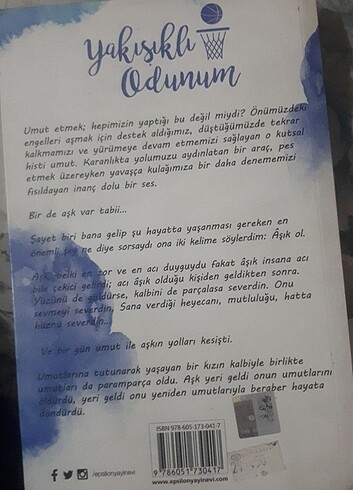 Yakışıklı
Odunum
Umut etmek; hepimizin yaptığı bu değil miydi? Önümüzdeki
engelleri aşmak için destek aldığımız, düştüğümüzde tekrar
kalkmamızı ve yürümeye devam etmemizi sağlayan o kutsal
histi umut. Karanlıkta yolumuzu aydınlatan bir araç, pes
etmek üzereyken yavaşça kulağımıza bir daha denememizi
fısıldayan inanç dolu bir ses.
Bir de aşk var tabii...
Şayet biri bana gelip şu hayatta yaşanması gereken en
önemli şey ne diye sorsaydı ona iki kelime söylerdim: Âşık ol.
Aşk belki en zor ve en acı duyguydu fakat âşık insana acı
bile çekici gelirdi; acı âşık olduğu kişiden geldikten sonra.
Yüzünü de güldürse, kalbini de parçalasa severdin. Onu
sevmeyi severdin, Sana verdiği heyecanı, mutluluğu, hatta
hüznü severdin...
Ve bir gün umut ile aşkın yolları kesişti.
Umutlarına tutunarak yaşayan bir kızın kalbiyle birlikte
umutları da paramparça oldu. Aşk yeri geldi onun umutlarını
öldürdü, yeri geldi onu yeniden umutlarıyla beraber hayata
döndürdü.
ISBN 978-605-173-041-7
9786051730417
/epsilonyayinevi
www.epsilonyayinevi.com